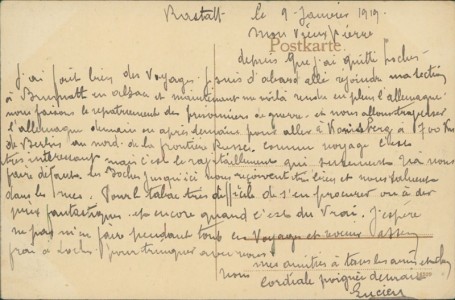 Rastatt le 9 Janvier 1919.
Mon Vieux Pierre
Postkarte
depuis que j'ai quitté Loches
j'ai fait bien des Voyages. Je suis d'abord allé rejoindre ma section
à en alsace et maintenant me voilà rendu en plein l'allemagne
nous faisons le rapatriement des prisonniers de guerre. et nous allons traverser
l'allemagne demain ou après demain pour aller à à 700 Km
de Berlin au nord. de la frontière Russe. comme voyage c'est
très intéressant mais c'est le ravitaillement qui surement va nous
faire défaut. les Boches jusqu'ici nous reçoivent très bien et nous saluent
dans les rues. Pour le tabac très difficile de s'en procurer ou à des
prix fantastiques. et encore quand c'est du Vrai. J'espère
ne pas m'en faire pendant tout ce Voyage et
à Loches pour trinquer avec vous.
mes amitiés à tous les amis
vous cordiale poignée de main
Lucien